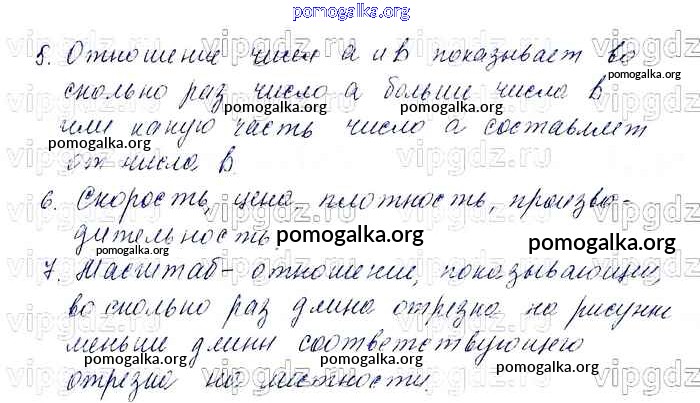 pomogalka.org
5. Отношение чисел a и b показывает во
сколько раз число a больше числа b
или какую часть число a составляет
от числа b.
6. Скорость, цена, плотность, произво-
дительность
7. Масштаб - отношение, показывающий,
во сколько раз длина отрезка на рисунке
меньше длины соответствующего
отрезка на местности.